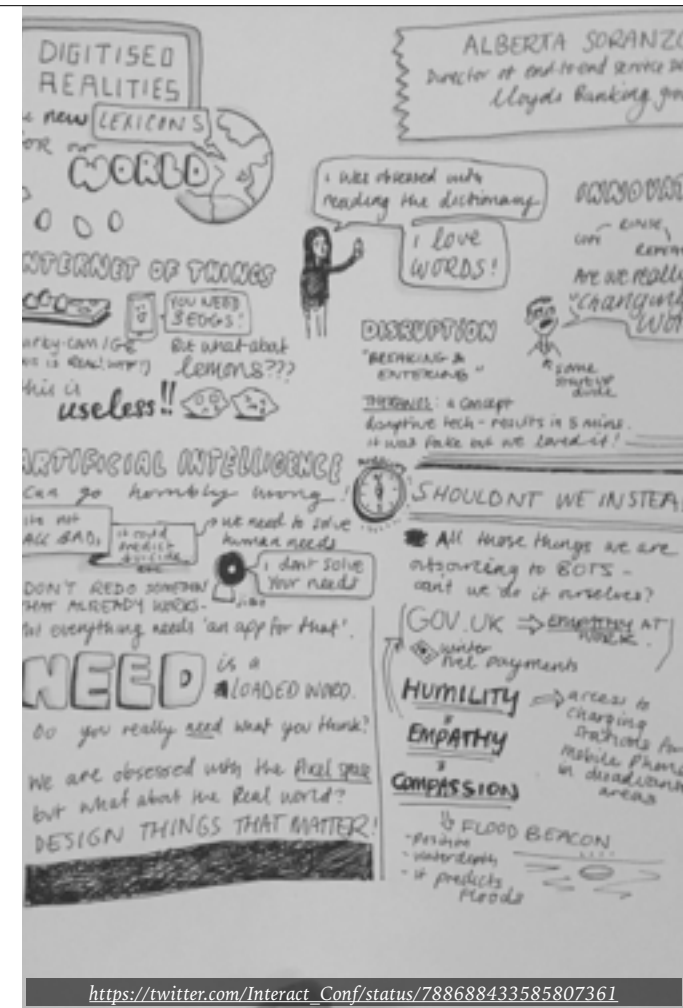 DIGITISED
REALITIES
new LEXICONS
FOR our
WORLD
ALBERTA SORANZO
Director of end-to-end service
Lloyds Banking
I was obsessed with
reading the dictionary
I love
WORDS!
INTERNET OF THINGS
YOU NEED
3 EGGS!
But what about
lemons???
this is
useless!!
INNOVAT
COPY RINSE REPEAT
Are we really
"changing
WOR
some
startup
dude
DISRUPTION
"BREAKING &
ENTERING"
THERANOS: a concept
disruptive tech - results in 5 mins.
it was fake but we loved it!
ARTIFICIAL INTELLIGENCE
Can go horribly wrong!
its not
ALL BAD,
it could
predict
suicide
we need to solve
human needs
I don't solve
your needs
JIBO
DON'T REDO SOMETHIN
THAT ALREADY WORKS-
everything needs 'an app for that'.
NEED is a
LOADED WORD.
Do you really need what you think?
We are obsessed with the Pixel space
but what about the Real world?
DESIGN THINGS THAT MATTER!
SHOULDNT WE INSTEA
All those things we are
outsourcing to BOTS -
can't we do it ourselves?
GOV.UK ⇒ EMPATHY AT
WORK.
winter
fuel payments
HUMILITY
EMPATHY
COMPASSION
access to
charging
stations for
mobile phone
in disadvant
areas
FLOOD BEACON
- position
- waterdepth
- it predicts
floods
https://twitter.com/Interact_Conf/status/788688433585807361